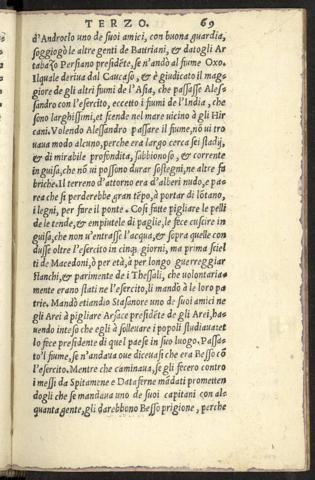 TERZO. 69
d'Androclo uno de suoi amici, con buona guardia,
soggiogò le altre genti de Battriani, & datogli Ar
tabazo Persiano presidẽte, se n'andò al fiume Oxo.
Ilquale deriua dal Caucaso, & è giudicato il mag=
giore de gli altri fiumi de l'Asia, che passasse Ales=
sandro con l'esercito, eccetto i fiumi de l'India, che
sono larghissimi, et scende nel mare uicino à gli Hir
cani. Volendo Alessandro passare il fiume, nõ ui tro
uaua modo alcuno, perche era largo cerca sei stadij,
& di mirabile profondita, sabbionoso, & corrente
in guisa, che nõ ui possono durar sostegni, ne altre fa
briche. Il terreno d'attorno era d'alberi nudo, e pa
rea che si perderebbe gran tẽpo, à portar di lõtano,
i legni, per fare il ponte. Cosi fatte pigliare le pelli
de le tende, & empiutele di paglie, le fece cuscire in
guisa, che non u'entrasse l'acqua, & sopra quelle con
dusse oltre l'esercito in cinq; giorni, ma prima sciel
ti de Macedoni, ò per età, à per longo guerreggiar
stanchi, & parimente de i Thessali, che uolontaria=
mente erano stati ne l'esercito, li mandò à le loro pa
trie. Mandò etiandio Stasanore uno de suoi amici ne
gli Arei à pigliare Arsace presidẽte de gli Arei, ha=
uendo inteso che egli à solleuare i popoli studiauatet
lo fece presidente di quel paese in suo luogo. Passa=
to'l fiume, se n'andaua oue diceuasi che era Besso cõ
l'esercito. Mentre che caminaua, se gli fecero contro
i messi da Spitamene e Dataferne mãdati prometten
dogli che se mandaua uno de suoi capitani con al=
quanta gente, gli darebbono Besso prigione, perche